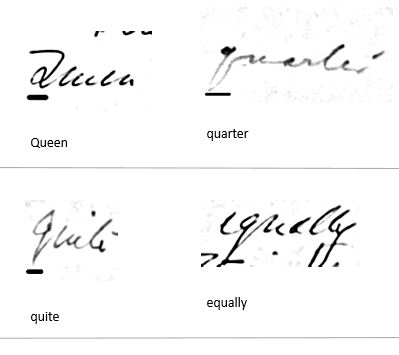 Queen quarter
Queen quarter
quite equally
quite equally